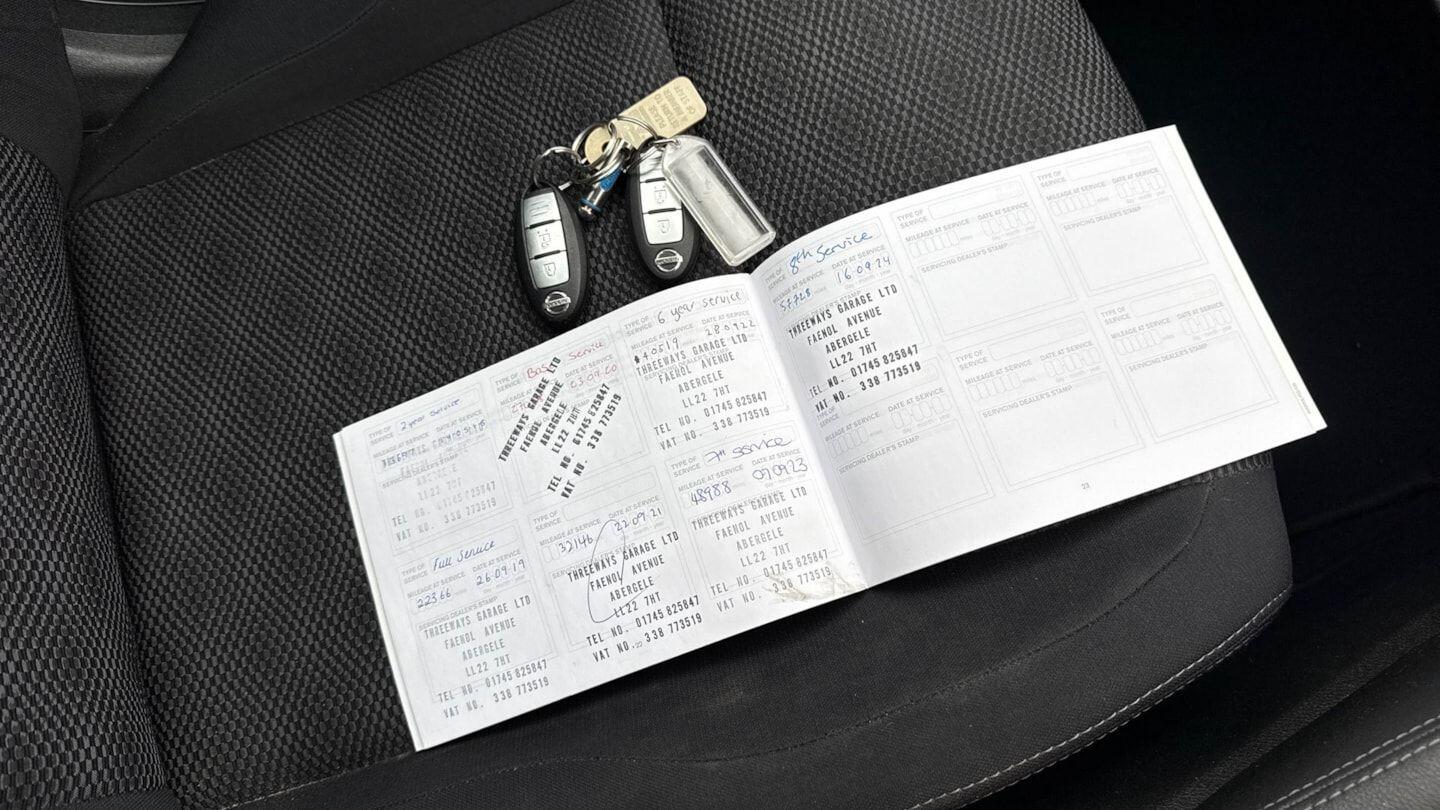 PLEASE
RETURN TO
A MEMBER
OF STAFF
TYPE OF
SERVICE
2 year service
MILEAGE AT SERVICE
DATE AT SERVICE
LL22 7HT
TEL NO. 01745 825847
VAT NO. 338 773519
TYPE OF
SERVICE
Full Service
MILEAGE AT SERVICE
DATE AT SERVICE
22366
26 09 19
SERVICING DEALER'S STAMP
THREEWAYS GARAGE LTD
FAENOL AVENUE
ABERGELE
LL22 7HT
TEL NO. 01745 825847
VAT NO. 338 773519
TYPE OF
SERVICE
Service
MILEAGE AT SERVICE
DATE AT SERVICE
THREEWAYS GARAGE LTD
FAENOL AVENUE
ABERGELE
LL22 7HT
TEL NO. 01745 825847
VAT NO. 338 773519
TYPE OF
SERVICE
MILEAGE AT SERVICE
DATE AT SERVICE
32146
22 09 21
THREEWAYS GARAGE LTD
FAENOL AVENUE
ABERGELE
LL22 7HT
TEL NO. 01745 825847
VAT NO. 338 773519
22
TYPE OF
SERVICE
6 year service
MILEAGE AT SERVICE
DATE AT SERVICE
40519
28 09 22
THREEWAYS GARAGE LTD
FAENOL AVENUE
ABERGELE
LL22 7HT
TEL NO. 01745 825847
VAT NO. 338 773519
TYPE OF
SERVICE
7th Service
MILEAGE AT SERVICE
DATE AT SERVICE
48988
07 09 23
THREEWAYS GARAGE LTD
FAENOL AVENUE
ABERGELE
LL22 7HT
TEL NO. 01745 825847
VAT NO. 338 773519
TYPE OF
SERVICE
8th Service
MILEAGE AT SERVICE
DATE AT SERVICE
57728
16 09 24
THREEWAYS GARAGE LTD
FAENOL AVENUE
ABERGELE
LL22 7HT
TEL NO. 01745 825847
VAT NO. 338 773519
TYPE OF
SERVICE
MILEAGE AT SERVICE
DATE AT SERVICE
SERVICING DEALER'S STAMP
TYPE OF
SERVICE
MILEAGE AT SERVICE
DATE AT SERVICE
miles
day month year
SERVICING DEALER'S STAMP
TYPE OF
SERVICE
MILEAGE AT SERVICE
DATE AT SERVICE
SERVICING DEALER'S STAMP
TYPE OF
SERVICE
MILEAGE AT SERVICE
DATE AT SERVICE
miles
day month year
SERVICING DEALER'S STAMP
TYPE OF
SERVICE
MILEAGE AT SERVICE
DATE AT SERVICE
SERVICING DEALER'S STAMP
23